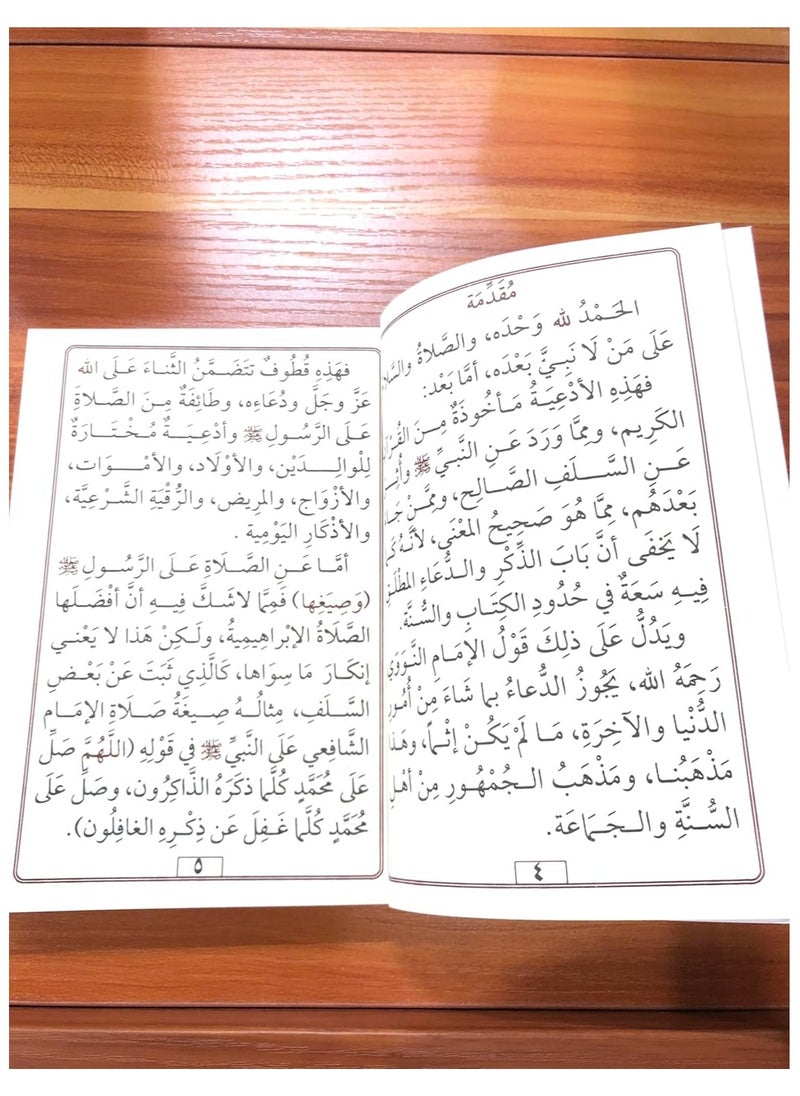 مُقَدِّمَة
الحَـمْدُ لله وَحْدَه، والصَّلاةُ والسَّلا
عَلَى مَنْ لَا نَبِيَّ بَعْدَه، أمَّا بَعْد:
فَهَذِهِ الأدْعِيَةُ مَأخُوذَةٌ مِنَ القُرْآن
الكَرِيم، ومِمَّا وَرَدَ عَنِ النَّبِيِّ ﷺ
عَنِ السَّلَفِ الصَّالِح، ومِمَّنْ جَا
بَعْدَهُم، مِمَّا هُوَ صَحِيحُ المَعْنَى، لأنَّهُ
لَا يَخْفَى أنَّ بَابَ الذِّكْرِ والدُّعَاءِ المُطْلَقِ
فِيهِ سَعَةٌ في حُدُودِ الكِتَابِ والسُّنَّة.
ويَدُلُّ عَلَى ذلِكَ قَوْلُ الإمَامِ النَّوَوِي
رَحِمَهُ الله، يَجُوزُ الدُّعاءُ بما شَاءَ مِنْ أُمُورِ
الدُّنْيا والآخِرَةِ، مَا لَمْ يَكُنْ إثْماً، وهَذا
مَذْهَبُنا، ومَذْهَبُ الجُمْهُورِ مِنْ أهْلِ
السُّنَّةِ والجَمَاعَة.
٤
فَهَذِهِ قُطُوفٌ تَتَضَمَّنُ الثَّناءَ عَلَى الله
عَزَّ وجَلَّ ودُعَاءِه، وطَائِفَةٌ مِنَ الصَّلاةِ
عَلَى الرَّسُولِ ﷺ وأدْعِيَةٌ مُخْتَارَةٌ
لِلْوالِدَيْن، والأوْلاد، والأمْوَات،
والأزْوَاج، والمرِيض، والرُّقْيَةِ الشَّرْعِيَّة،
والأذْكَارِ اليَوْمِية .
أمَّا عَنِ الصَّلَاةِ عَلَى الرَّسُولِ ﷺ
(وَصِيَغِها) فَمِمَّا لاشَكَّ فِيهِ أنَّ أفْضَلَها
الصَّلاةُ الإبْراهِيمِيةُ، ولَكِنْ هَذا لا يَعْنـي
إنكَارَ مَا سِوَاها، كَالَّذِي ثَبَتَ عَنْ بَعْضِ
السَّلَفِ، مِثالُهُ صِيغَةُ صَلَاةِ الإمَام
الشَّافِعي عَلَى النَّبيِّ ﷺ في قَوْلِهِ (اللَّهُمَّ صَلِّ
عَلَى مُحَمَّدٍ كُلَّما ذكَرَهُ الذَّاكِرُون، وصَلِّ عَلَى
مُحَمَّدٍ كُلَّما غَفِلَ عَن ذِكْرِهِ الغافِلُون).
٥